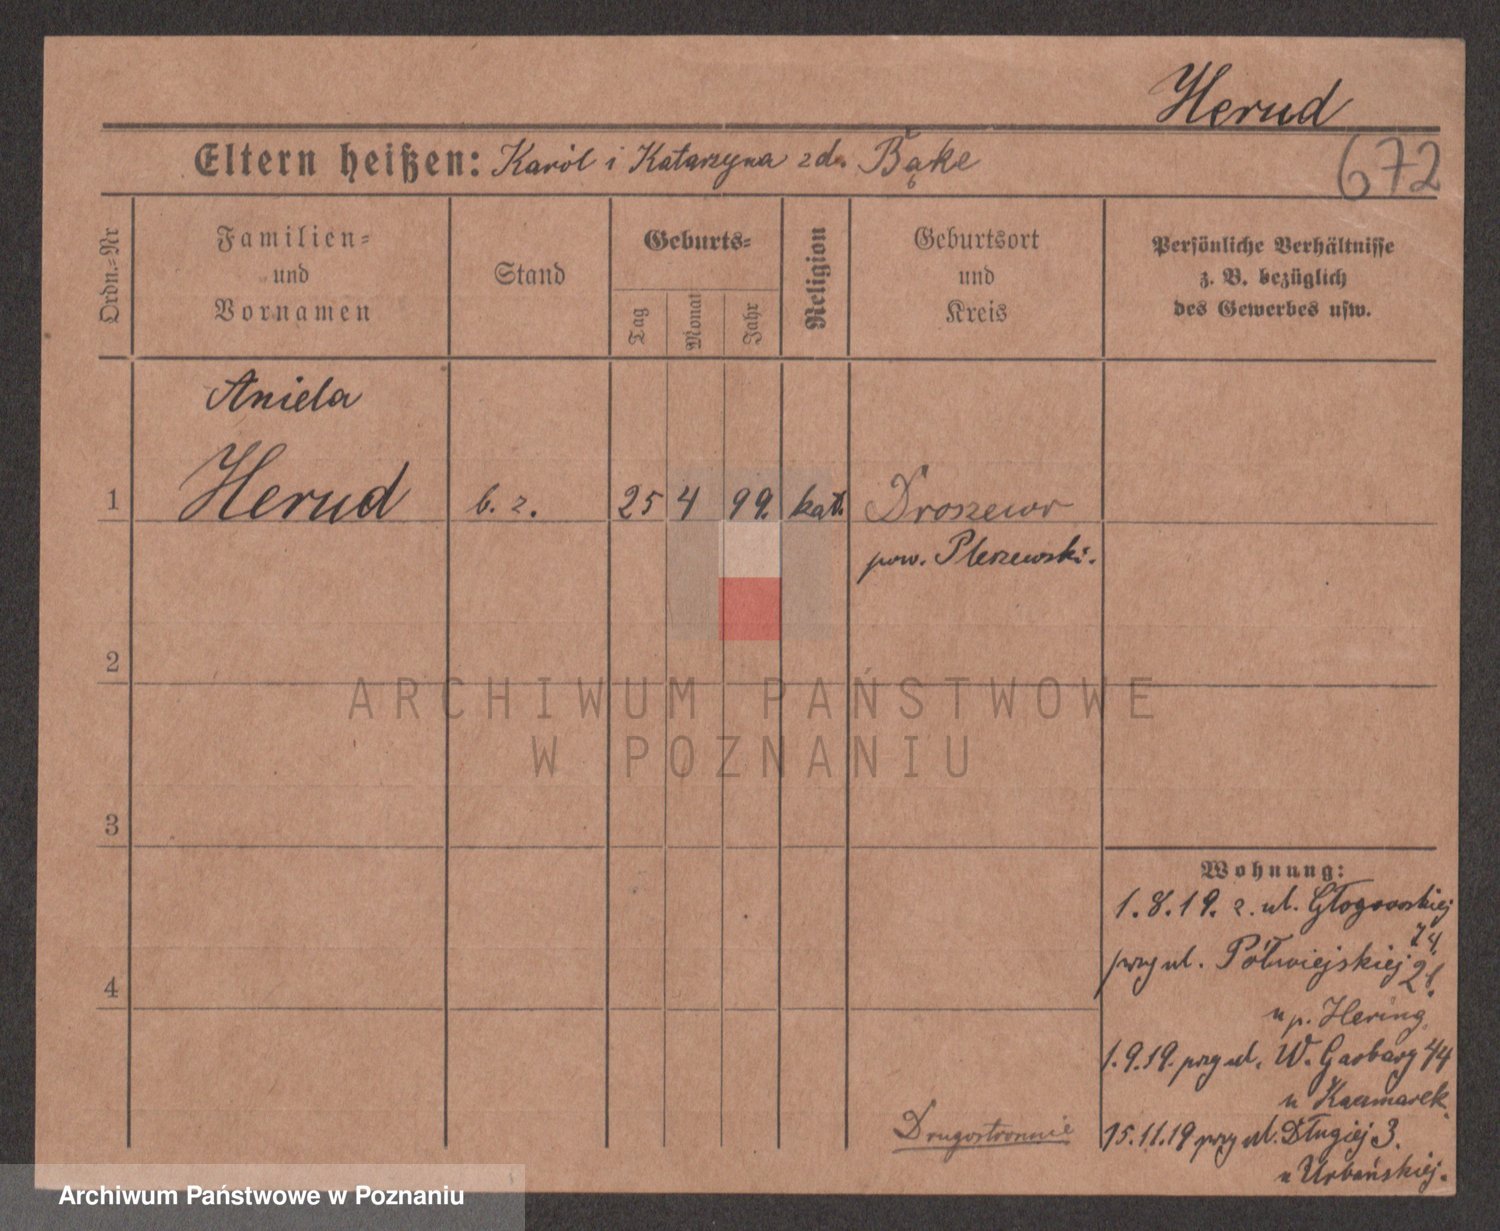 Herud
Eltern heißen: Karól i Katarzyna z d. Bąke
672
Ordn.=Nr
Familien=
und
Vornamen
Stand
Geburts=
Tag
Monat
Jahr
Religion
Geburtsort
und
Kreis
Persönliche Verhältnisse
z. B. bezüglich
des Gewerbes usw.
Aniela
1 Herud b. z. 25 4 99. kat. Droszew
pow. Pleszewski.
2
ARCHIWUM PAŃSTWOWE
W POZNANIU
3
Wohnung:
1.8.19. z. ul. Głogowskiej
74.
przy ul. Półwiejskiej 21.
4
u p. Hering
1.9.19. przy ul. W. Garbary 44
u Kaczmarek
Drugostronnie
15.11.19 przy ul. Długiej 3.
u Urbańskiej.
Archiwum Państwowe w Poznaniu